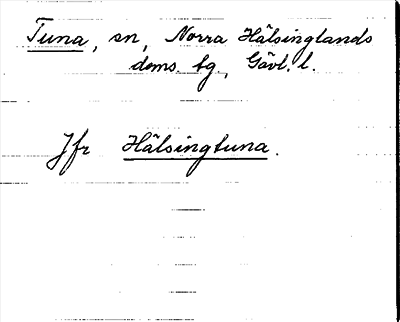 Tuna, sn, Norra Hälsinglands
doms. tg., Gävl. l.
Jfr Hälsingtuna.